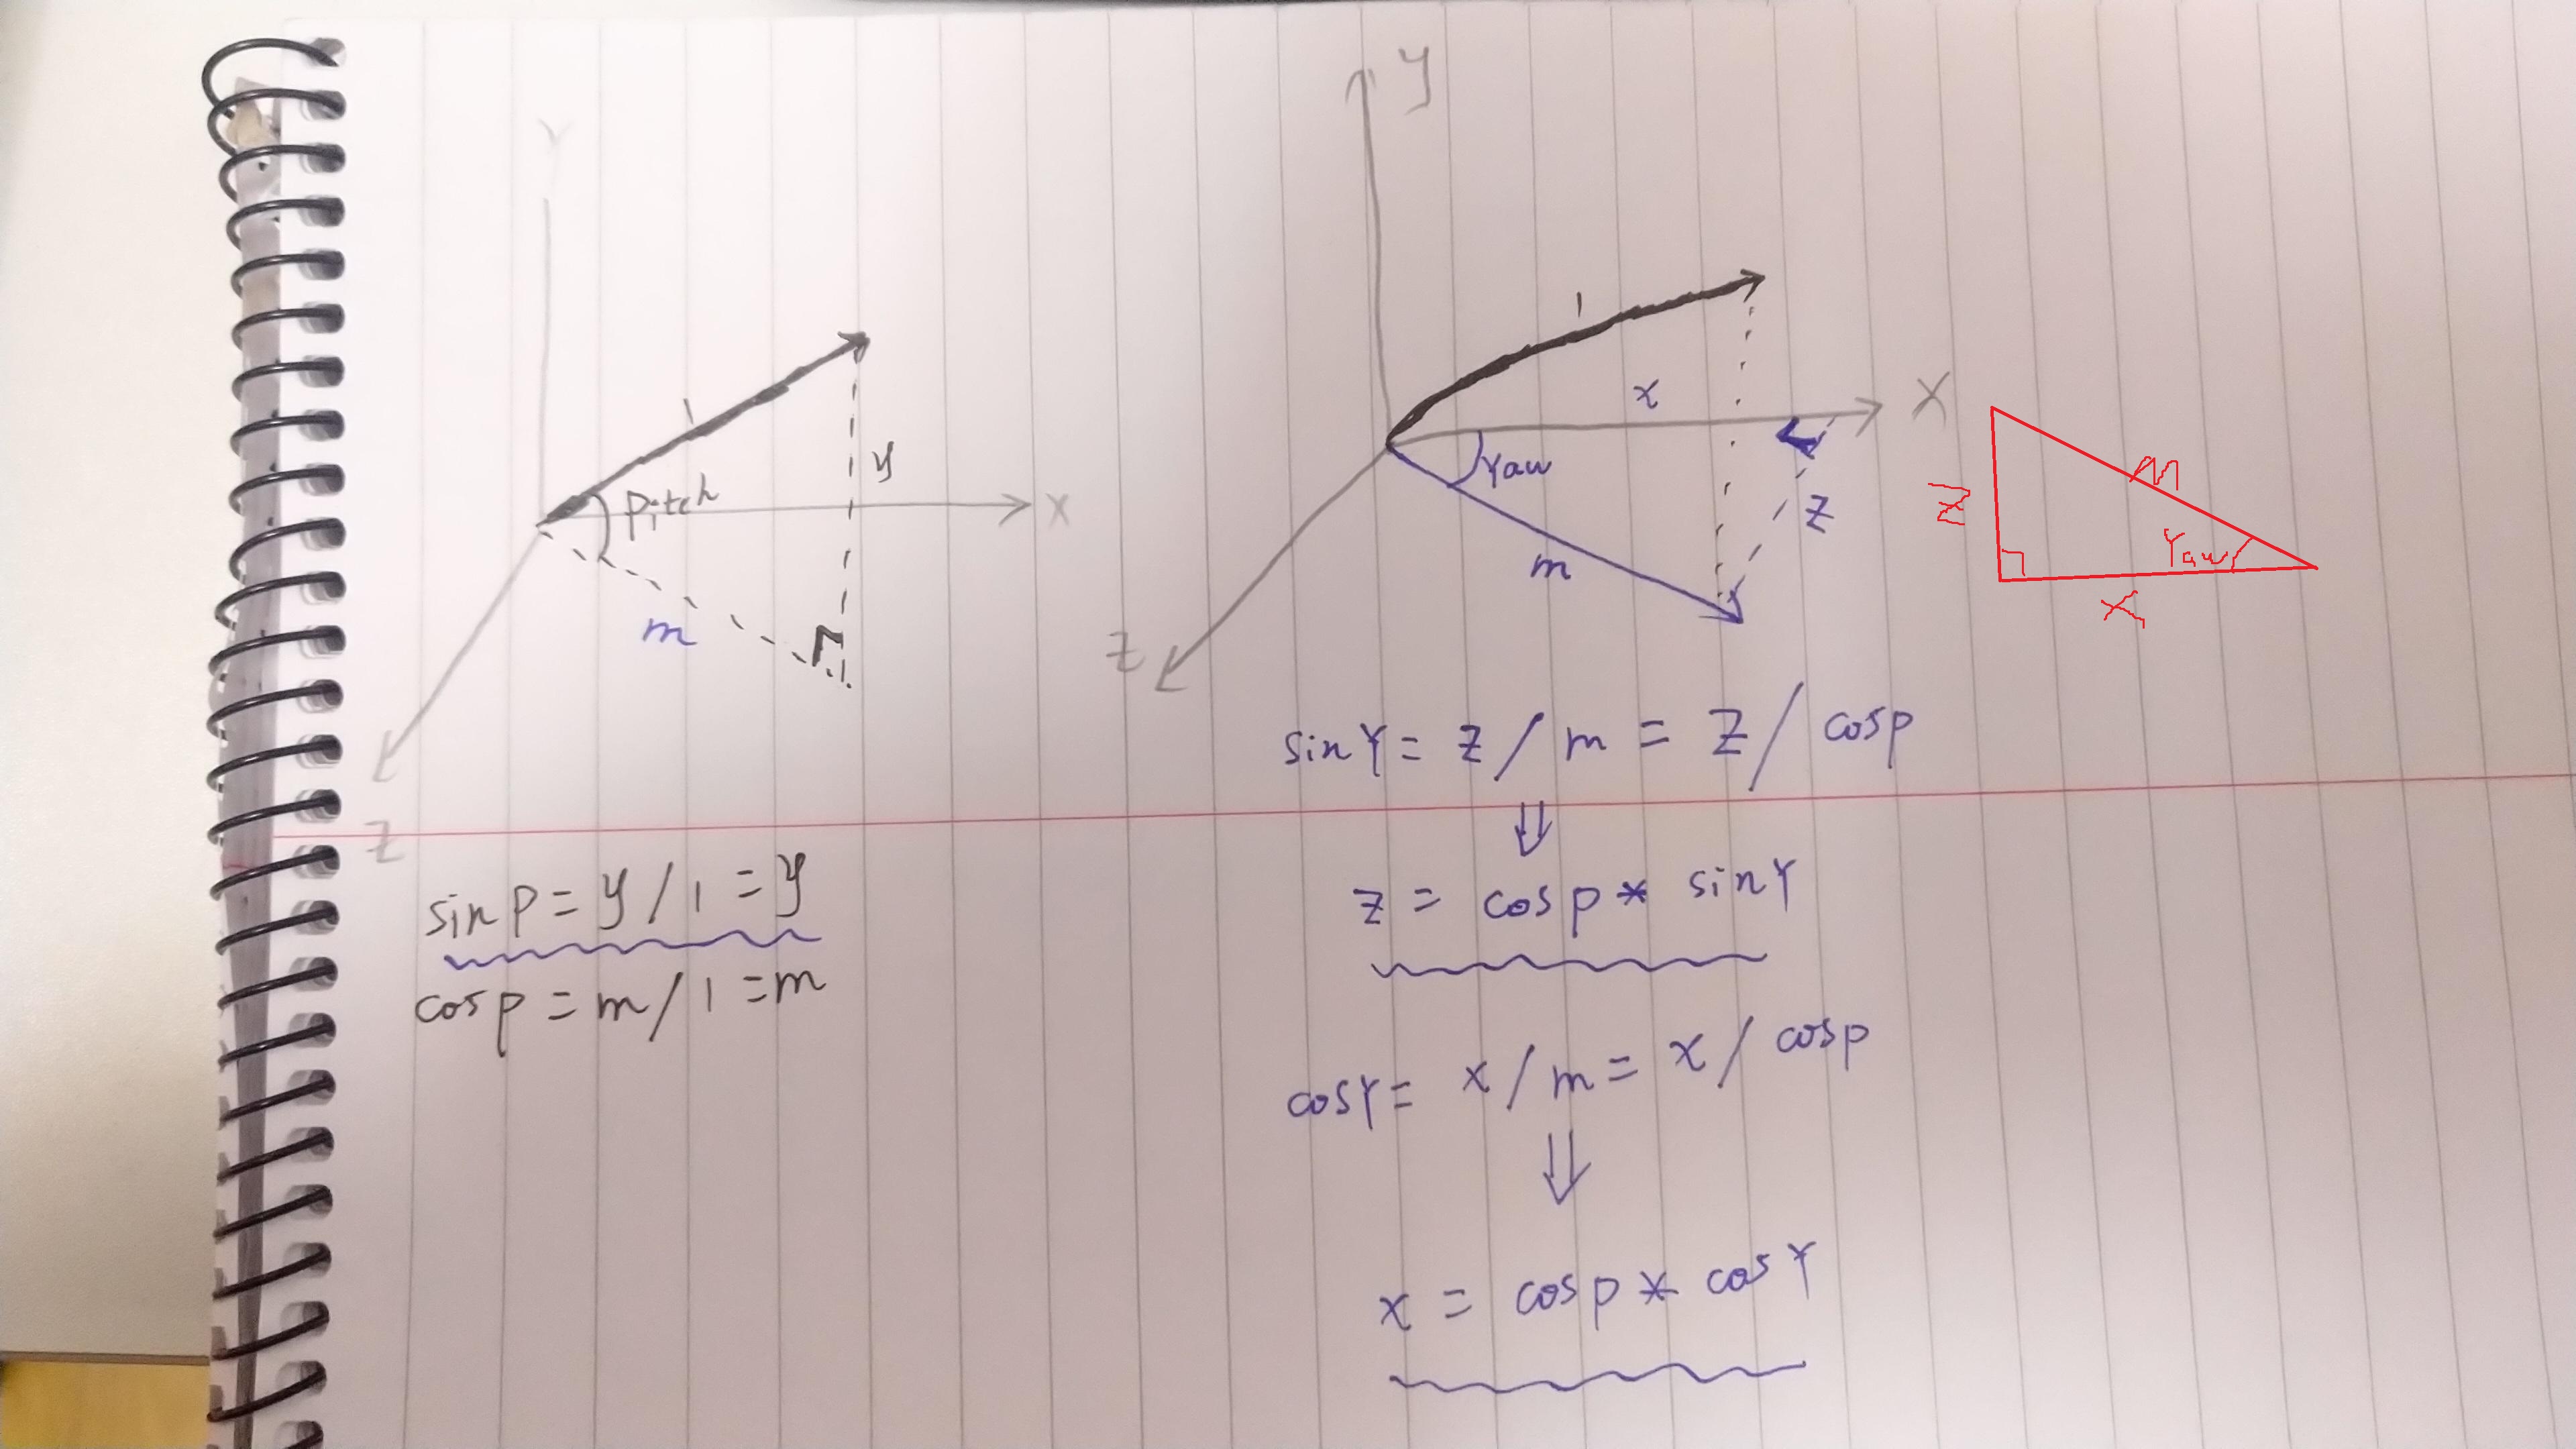 Y
1
Pitch
y
X
m
Z
sin P = y / 1 = y
cos p = m / 1 = m
y
1
x
X
Yaw
z
m
Z
sin Y = z / m = z / cos p
⇓
z = cos p * sin Y
cos Y = x / m = x / cos p
⇓
x = cos p * cos Y
m
Z
Yaw
X